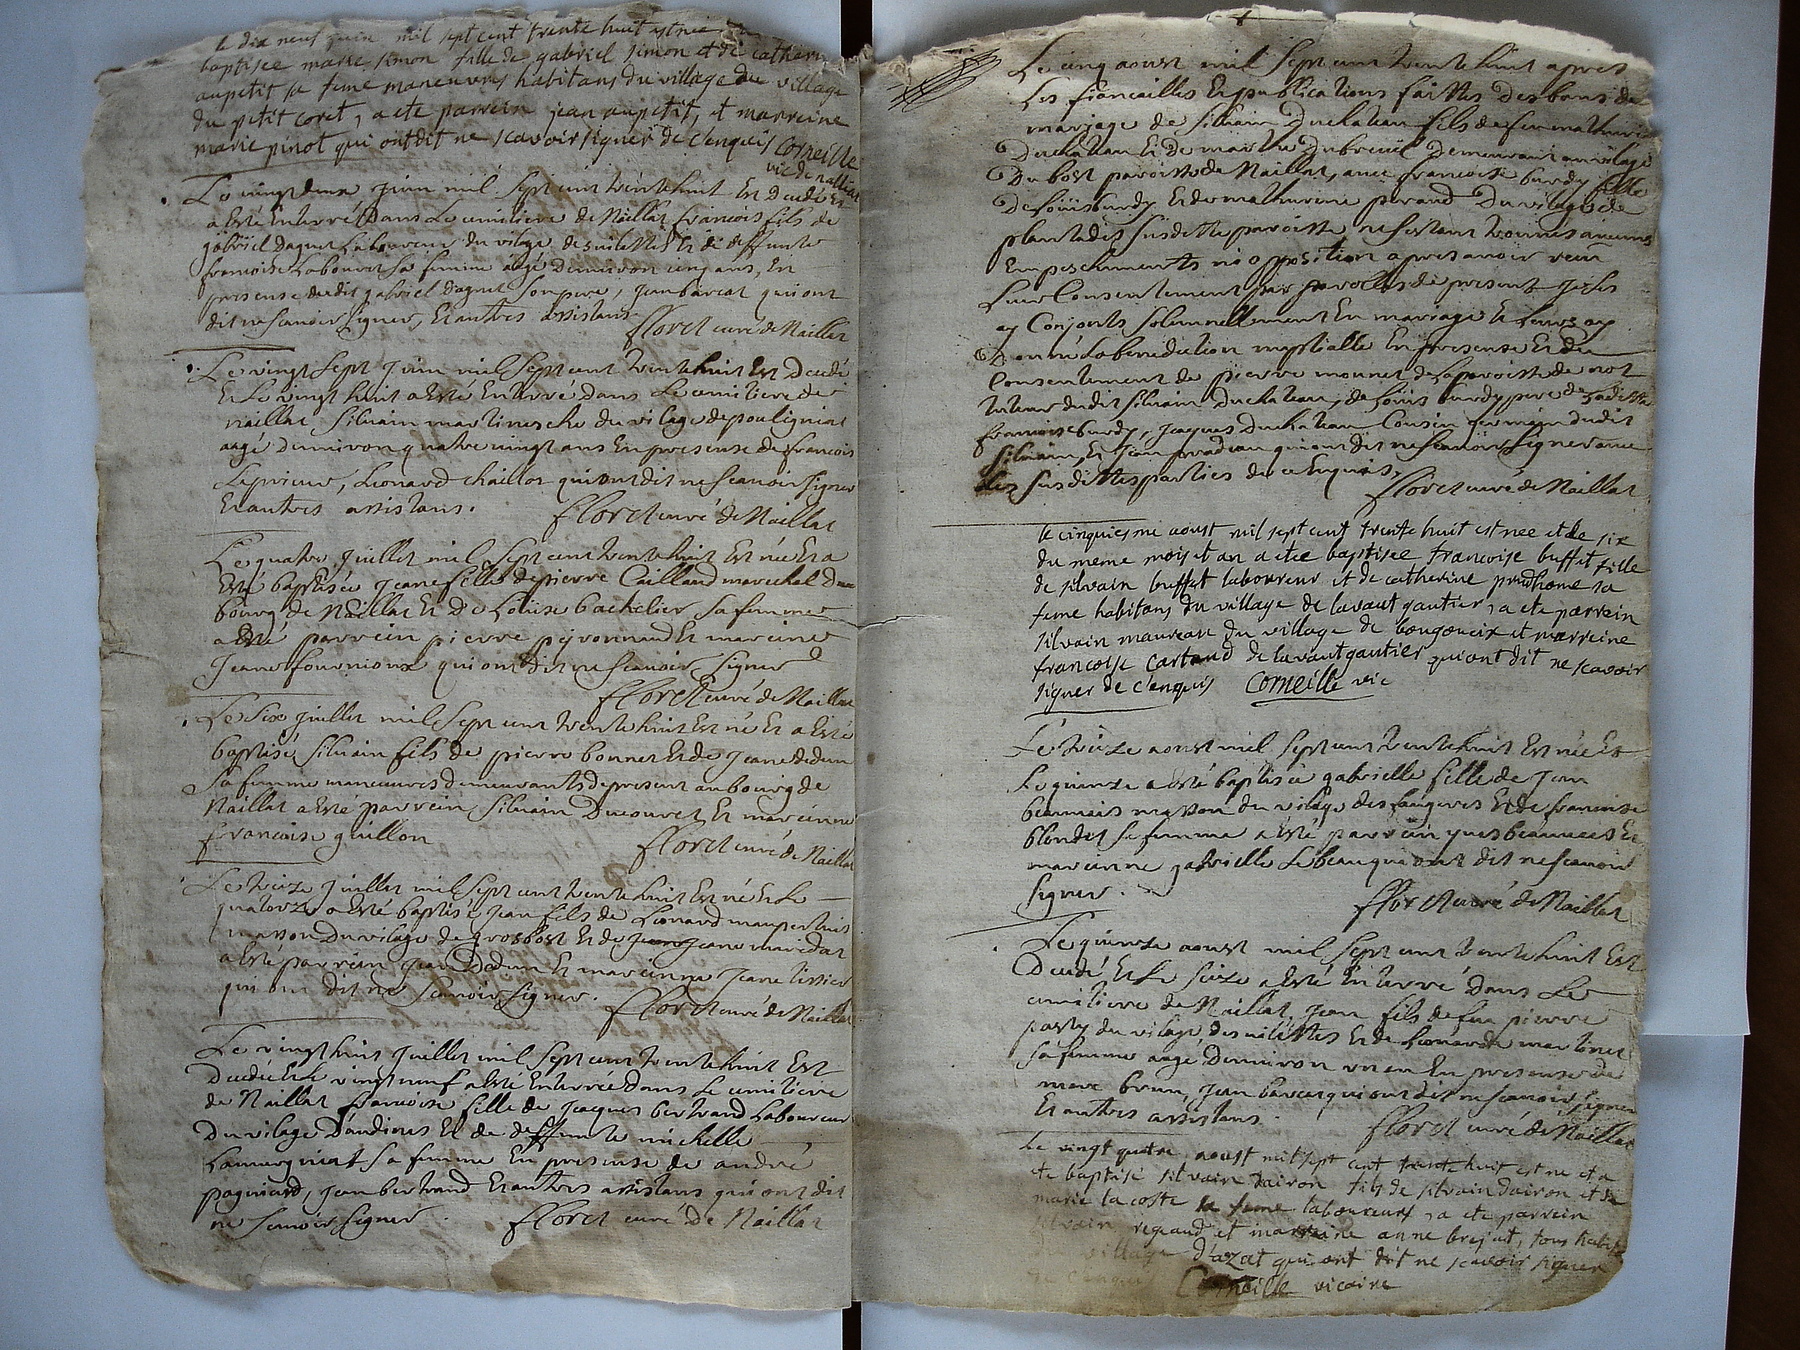 le dix neuf juin mil sept cent trente huit est née
baptisee marie simon fille de gabriel simon et de catherine
aupetit sa feme maneuvres habitans du village du village
du petit coret, a ete parrein jean aupetit, et marreine
marie pinot qui ont dit ne scavoir signer de c'enquis Corneille
vic de naillat
Le vingt deux juin mil sept cent trente huit Est decedé Et
a Esté Enterré dans Le cimitiere de Naillat francois fils de
gabriel daguet Laboureur du vilage des vilettes Et de deffunte
francoise Labouret sa femme aagé d'environ cinq ans, En
presense dudit gabriel daguet son pere, jean barcat qui ont
dit ne scavoir signer, Et autres assistans
floret curé de Naillat
Le vingt sept juin mil sept cent trente huit Est decedé
Et Le vingt huit a Esté Enterré dans Le cimitiere de
naillat silvain martinesche du vilage de pouligniat
aagé d'environ quatre vingt ans En presense de francois
Leprieur, Leonard chaillot qui ont dit ne scavoir signer
Et autres assistans.
floret curé de Naillat
Le quatre juillet mil sept cent trente huit Est née Et a
Esté baptisée jeane fille de pierre Caillaud marechal du
bourg de Naillat Et de Loüise bachelier sa femme
a Esté parrein pierre peyronnaud Et mareine
jeane fournioux qui ont dit ne scavoir signer
floret curé de Naillat
Le six juillet mil sept cent trente huit Est né Et a Esté
baptisé silvain fils de pierre bonnet Et de jeane dedun
sa femme maneuvres demeurants de present au bourg de
Naillat a Esté parrein silvain Ducouret Et mareinne
francoise guillon
floret curé de Naillat
Le treize juillet mil sept cent trente huit Est né Et Le
quatorze a Esté baptisé jean fils de Leonard maupertuis
masson du vilage de grosbost Et de jeane maridat
a Esté parrein jean Dedun Et mareinne jeane tissier
qui ont dit ne scavoir signer.
floret curé de Naillat
Le vingt huit juillet mil sept cent trente huit Est
decedée Et Le vingt neuf a Esté Enterrée dans Le cimitiere
de Naillat francoise fille de jacques bertrand Laboureur
du vilage D'andines Et de deffunte michelle
Lamergniat sa femme En presense de andré
pagniard, jean bertrand Et autres assistans qui ont dit
ne scavoir signer.
floret curé de Naillat
Le cinq aoust mil sept cent trente huit apres
Les fiancailles Et publications faittes des bans de
mariage de silvain Duchateau fils de feu mathurin
Duchateau Et de marthe Dubreuil demeurant au vilage
Du bost paroisse de Naillat, avec francoise burdy fille
De Loüis burdy Et de mathurine peraud Du vilage de
plantadis susditte paroisse ne s'estant trouvés aucuns
Empeschements ni opposition apres avoir receu
Leur Consentement par parolles de present je les
ay Conjoints solemnellement En mariage Et Leurs ay
Donné La benediction nuptialle En presense Et du
Consentement de pierre monnet de La paroisse de not
tuteur dudit silvain Duchateau, de Loüis burdy pere de Laditte
francoise burdy, jacques Duchateau Cousin germain dudit
silvain, Et jean pradeau qui ont dit ne scavoir signer avec
Les susdittes parties de ce Enquis,
floret curé de Naillat
le cinquiesme aoust mil sept cent trente huit est nee et le six
du meme mois et an a etee baptisee francoise buffet fille
de silvain buffet laboureur et de catherine prudhome sa
feme habitans du village de lavaut gautier, a ete parrein
silvain maureau du village de bougoueix et marreine
francoise Cartaud de lavaut gautier qui ont dit ne scavoir
signer de c'enquis Corneille vic
Le treize aoust mil sept cent trente huit Est née Et
Le quinze a Esté baptisée gabrielle fille de jean
beaumais masson du vilage des faugeres Et de francoise
blondet sa femme a Esté parrein yves beaumais Et
mareinne gabrielle Lebeau qui ont dit ne scavoir
signer.
floret curé de Naillat
Le quinze aoust mil sept cent trente huit Est
decedé Et Le seize a Esté Enterré dans Le
cimitiere de Naillat, jean fils de feu pierre
party du vilage des vilettes Et de Leonarde martinet
sa femme aagé d'environ un an En presense de
marc brun, jean barcat qui ont dit ne scavoir signer
Et autres assistans.
floret curé de Naillat
Le vingt quatre aoust mil sept cent trente huit est ne et a
ete baptisé silvain dairon fils de silvain dairon et de
marie lacoste sa feme laboureurs, a ete parrein
silvain regaud et marreine anne brejat, tous habit
du village d'azat qui ont dit ne scavoir signer
de c'enquis Corneille vicaire